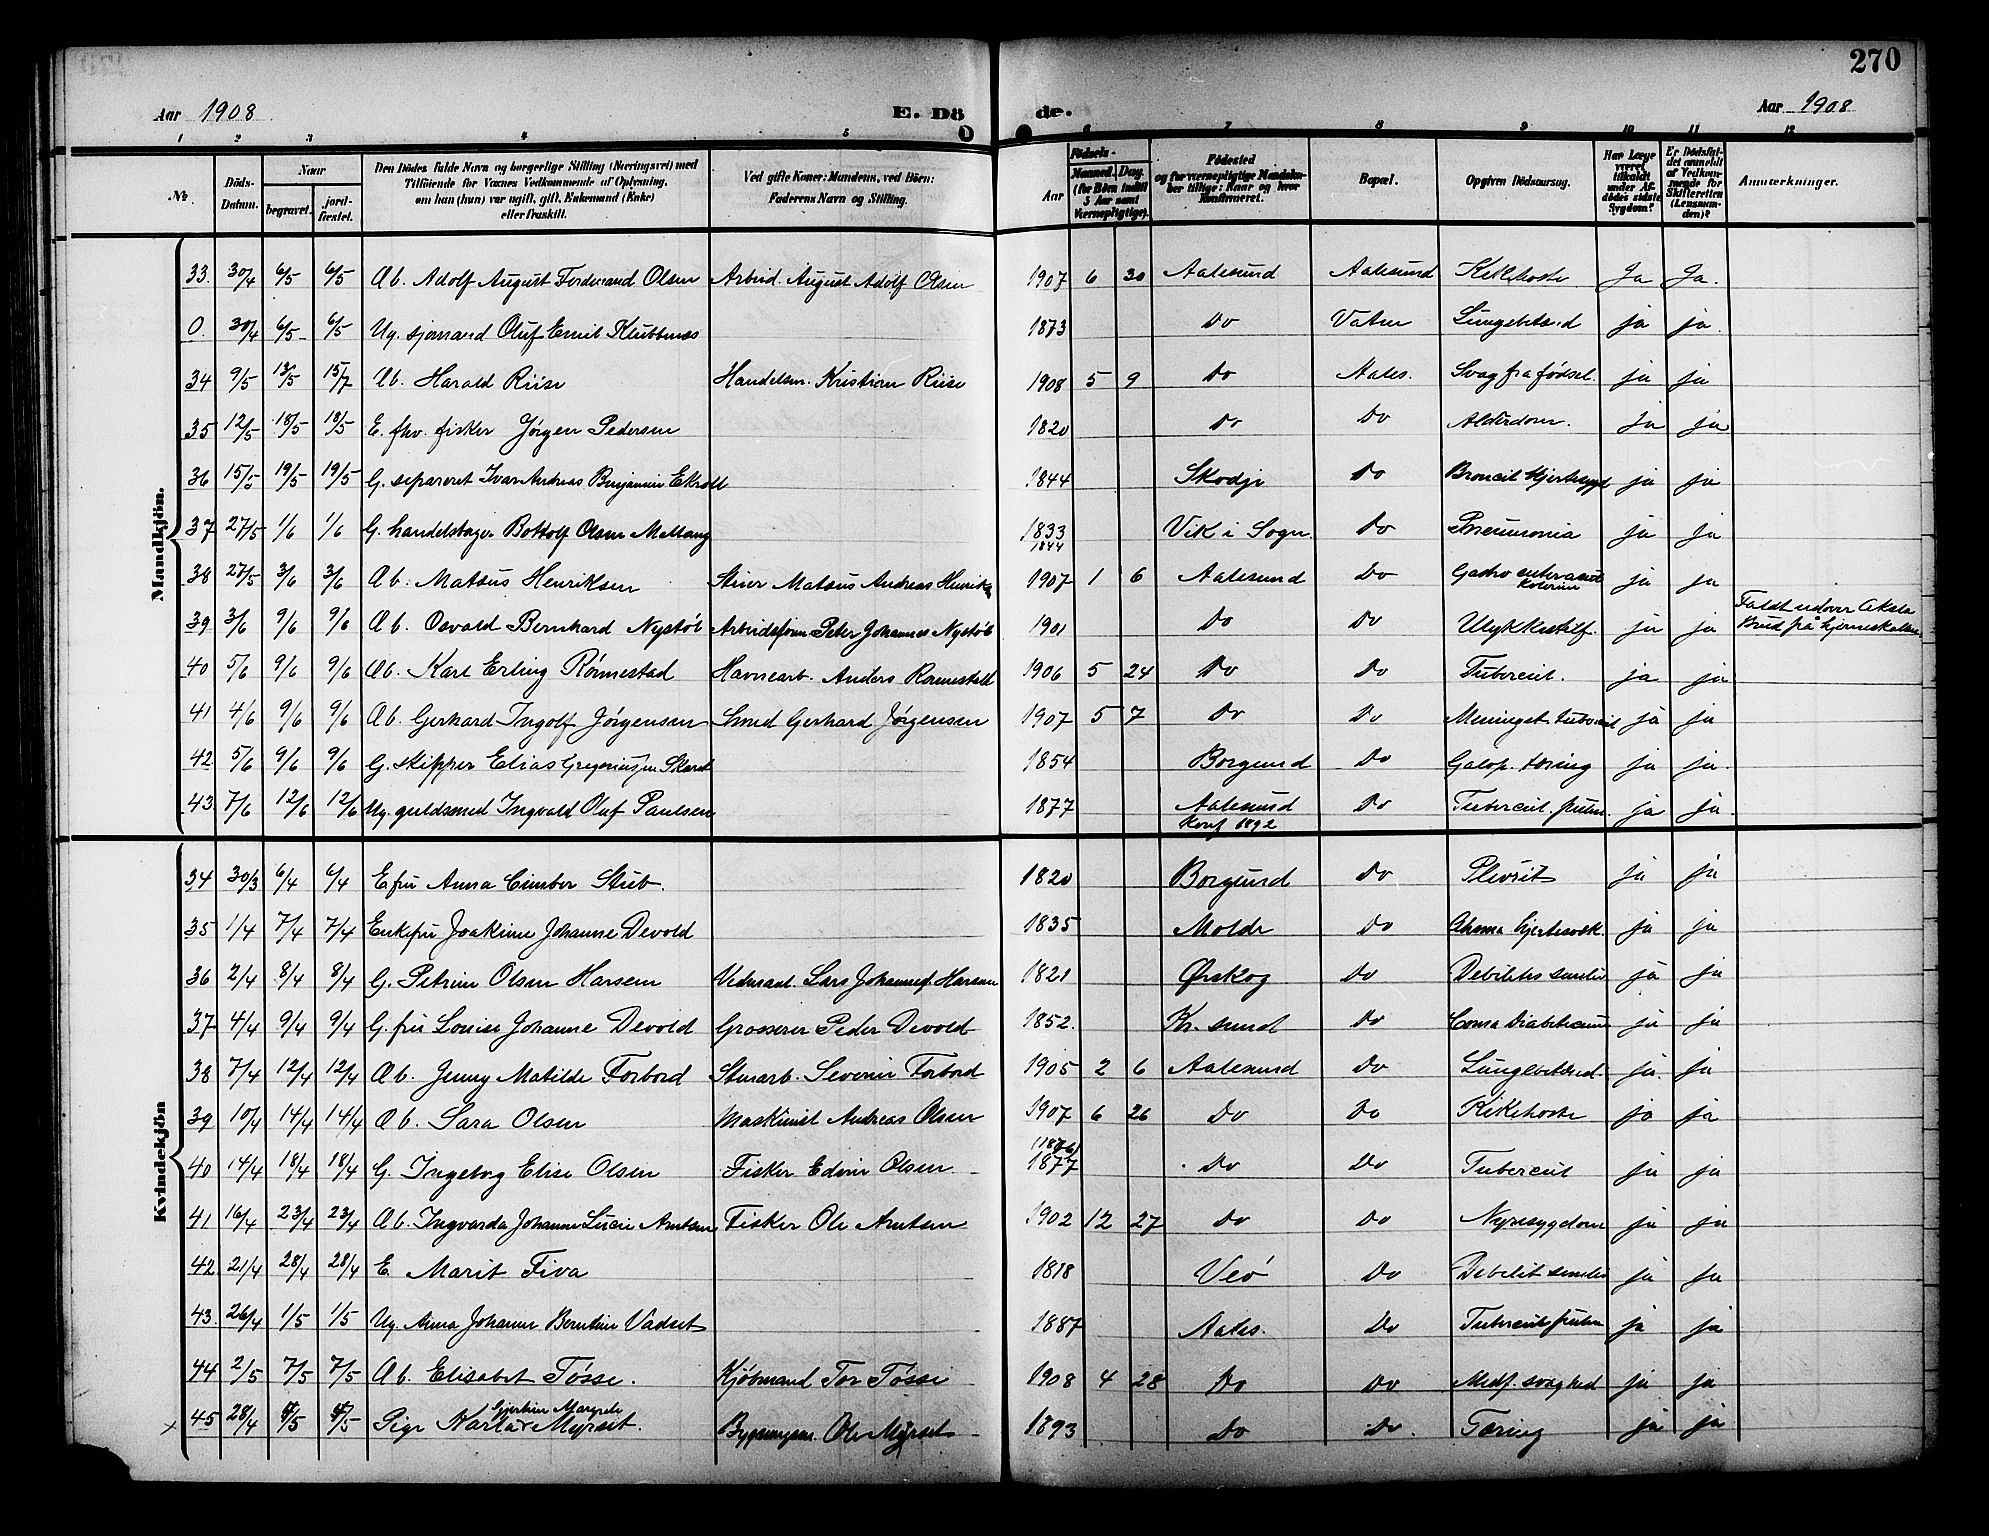 270
Aar 1908 E. Dö de. Aar 1908
1 2 3 4 5 6 7 8 9 10 11 12
№ Döds-Datum. Naar begravet. jordfæstet. Den Dödes fulde Navn og borgerlige Stilling (Næringsvei) med Tilföiende for Voxnes Vedkommende af Oplysning, om han (hun) var ugift, gift, Enkemand (Enke) eller fraskilt. Ved gifte Koner: Mandens, ved Börn: Faderens Navn og Stilling. Aar Födsels- Maaned. Dag. (for Börn indtil 5 Aar samt Værnepligtige). Födested og for værnepligtige Mandskaber tillige: Naar og hvor konfirmeret. Bopæl. Opgiven Dödsaarsag. Har Læge været tilkaldt under Afdödes sidste Sygdom? Er Dödsfaldet anmeldt af Vedkommende for Skifteretten (Lensmanden)? Anmærkninger.
Mandkjön.
33. 30/4 6/5 6/5 Ab. Adolf August Ferdinand Olsen Arbeid. August Adolf Olsen 1907 6 30 Aalesund Aalesund Kikhoste Ja Ja.
0. 30/4 6/5 6/5 Ug. sjømand Oluf Emil Klubbenes 1873 Do Vatne Lungebetænd ja ja.
34 9/5 13/5 15/7 Ab. Harald Riise Handelsm. Kristian Riise 1908 5 9 Do Aales. Svag fra fødsel. ja ja
35 12/5 18/5 18/5 E. fhv. fisker Jørgen Pedersen 1820 Do Do Alderdom. ja ja
36 15/5 19/5 19/5 G. separeret Ivar Andreas Benjamin Ekroll 1844 Skodje Do Broncit Hjertesygd ja ja
37 27/5 1/6 1/6 G. handelsbager Bottolf Olsen Mellang 1833 1844 Vik i Sogn Do Pneumonia ja ja
38 27/5 3/6 3/6 Ab. Matæus Henriksen Matæus Andreas Henriks 1907 1 6 Aalesund Do Gastro ja ja
39 3/6 9/6 9/6 Ab. Osvald Bernhard Nystøl Arbeidsform Peter Johannes Nystøl 1901 Do Do Ulykkestilf. ja ja Faldt udover Aksla Brud på hjerneskallen
40 5/6 9/6 9/6 Ab. Karl Erling Rønnestad Havnearb. Anders Rønnestad 1906 5 24 Do Do Tubercul. ja ja
41 4/6 9/6 9/6 Ab. Gerhard Ingolf Jørgensen Smed Gerhard Jørgensen 1907 5 7 Do Do Meninget. tubercul ja ja
42 5/6 9/6 9/6 G. skipper Elias Gregoriussen Skaret 1854 Borgund Do Galop. tæring ja ja.
43 7/6 12/6 12/6 Ug. guldsmed Ingvald Oluf Paulsen 1877 Aalesund Konf 1892 Do Tubercul. pulm. ja ja.
Kvindekjön
34 30/3 6/4 6/4 E fru Anna Cimber Stub. 1820 Borgund Do Plevrit ja ja
35 1/4 7/4 7/4 Enkefru Joakime Johanne Devold 1835 Molde Do ja ja
36 2/4 8/4 8/4 G. Petrine Olsen Harsem Lars Johannes. Harsem 1821 Ørskog Do Debilitas senilis ja ja
37 4/4 9/4 9/4 G. fru Louise Johanne Devold Grosserer Peder Devold 1852. Kr. sund Do Coma Diabeticum ja ja
38 7/4 12/4 12/4 Ab. Jenny Matilde Forbord Stuearb. Severin Forbord 1905 2 6 Aalesund Do Lungebetænd. ja. ja
39 10/4 14/4 14/4 Ab. Sara Olsen Maskinist Andreas Olsen 1907 6 26 Do Do Kikhoste ja ja
40 14/4 18/4 18/4 G. Ingeborg Elise Olsen Fisker Edvin Olsen (1876) 1877 Do Do Tubercul ja ja
41 16/4 23/4 23/4 Ab. Ingvarda Johanne Lucie Arntsen Fisker Ole Arntsen 1902 12 27 Do Do Nyresygdom ja ja
42 21/4 28/4 28/4 E. Marit Fiva 1818 Veø Do Debilit senilis ja ja
43. 26/4 1/5 1/5 Ug. Anna Johanne Berntine Vadset 1887 Aales. Do Tubercul pulm ja ja
44 2/5 7/5 7/5 Ab. Elisabet Tøsse. Kjøbmand Tor Tøsse 1908 4 28 Do Do Medf. svaghed ja ja
x 45 28/4 Pige Gjertine Margrete Myrset Ole Myrset 1893 Do Do. Tæring ja ja